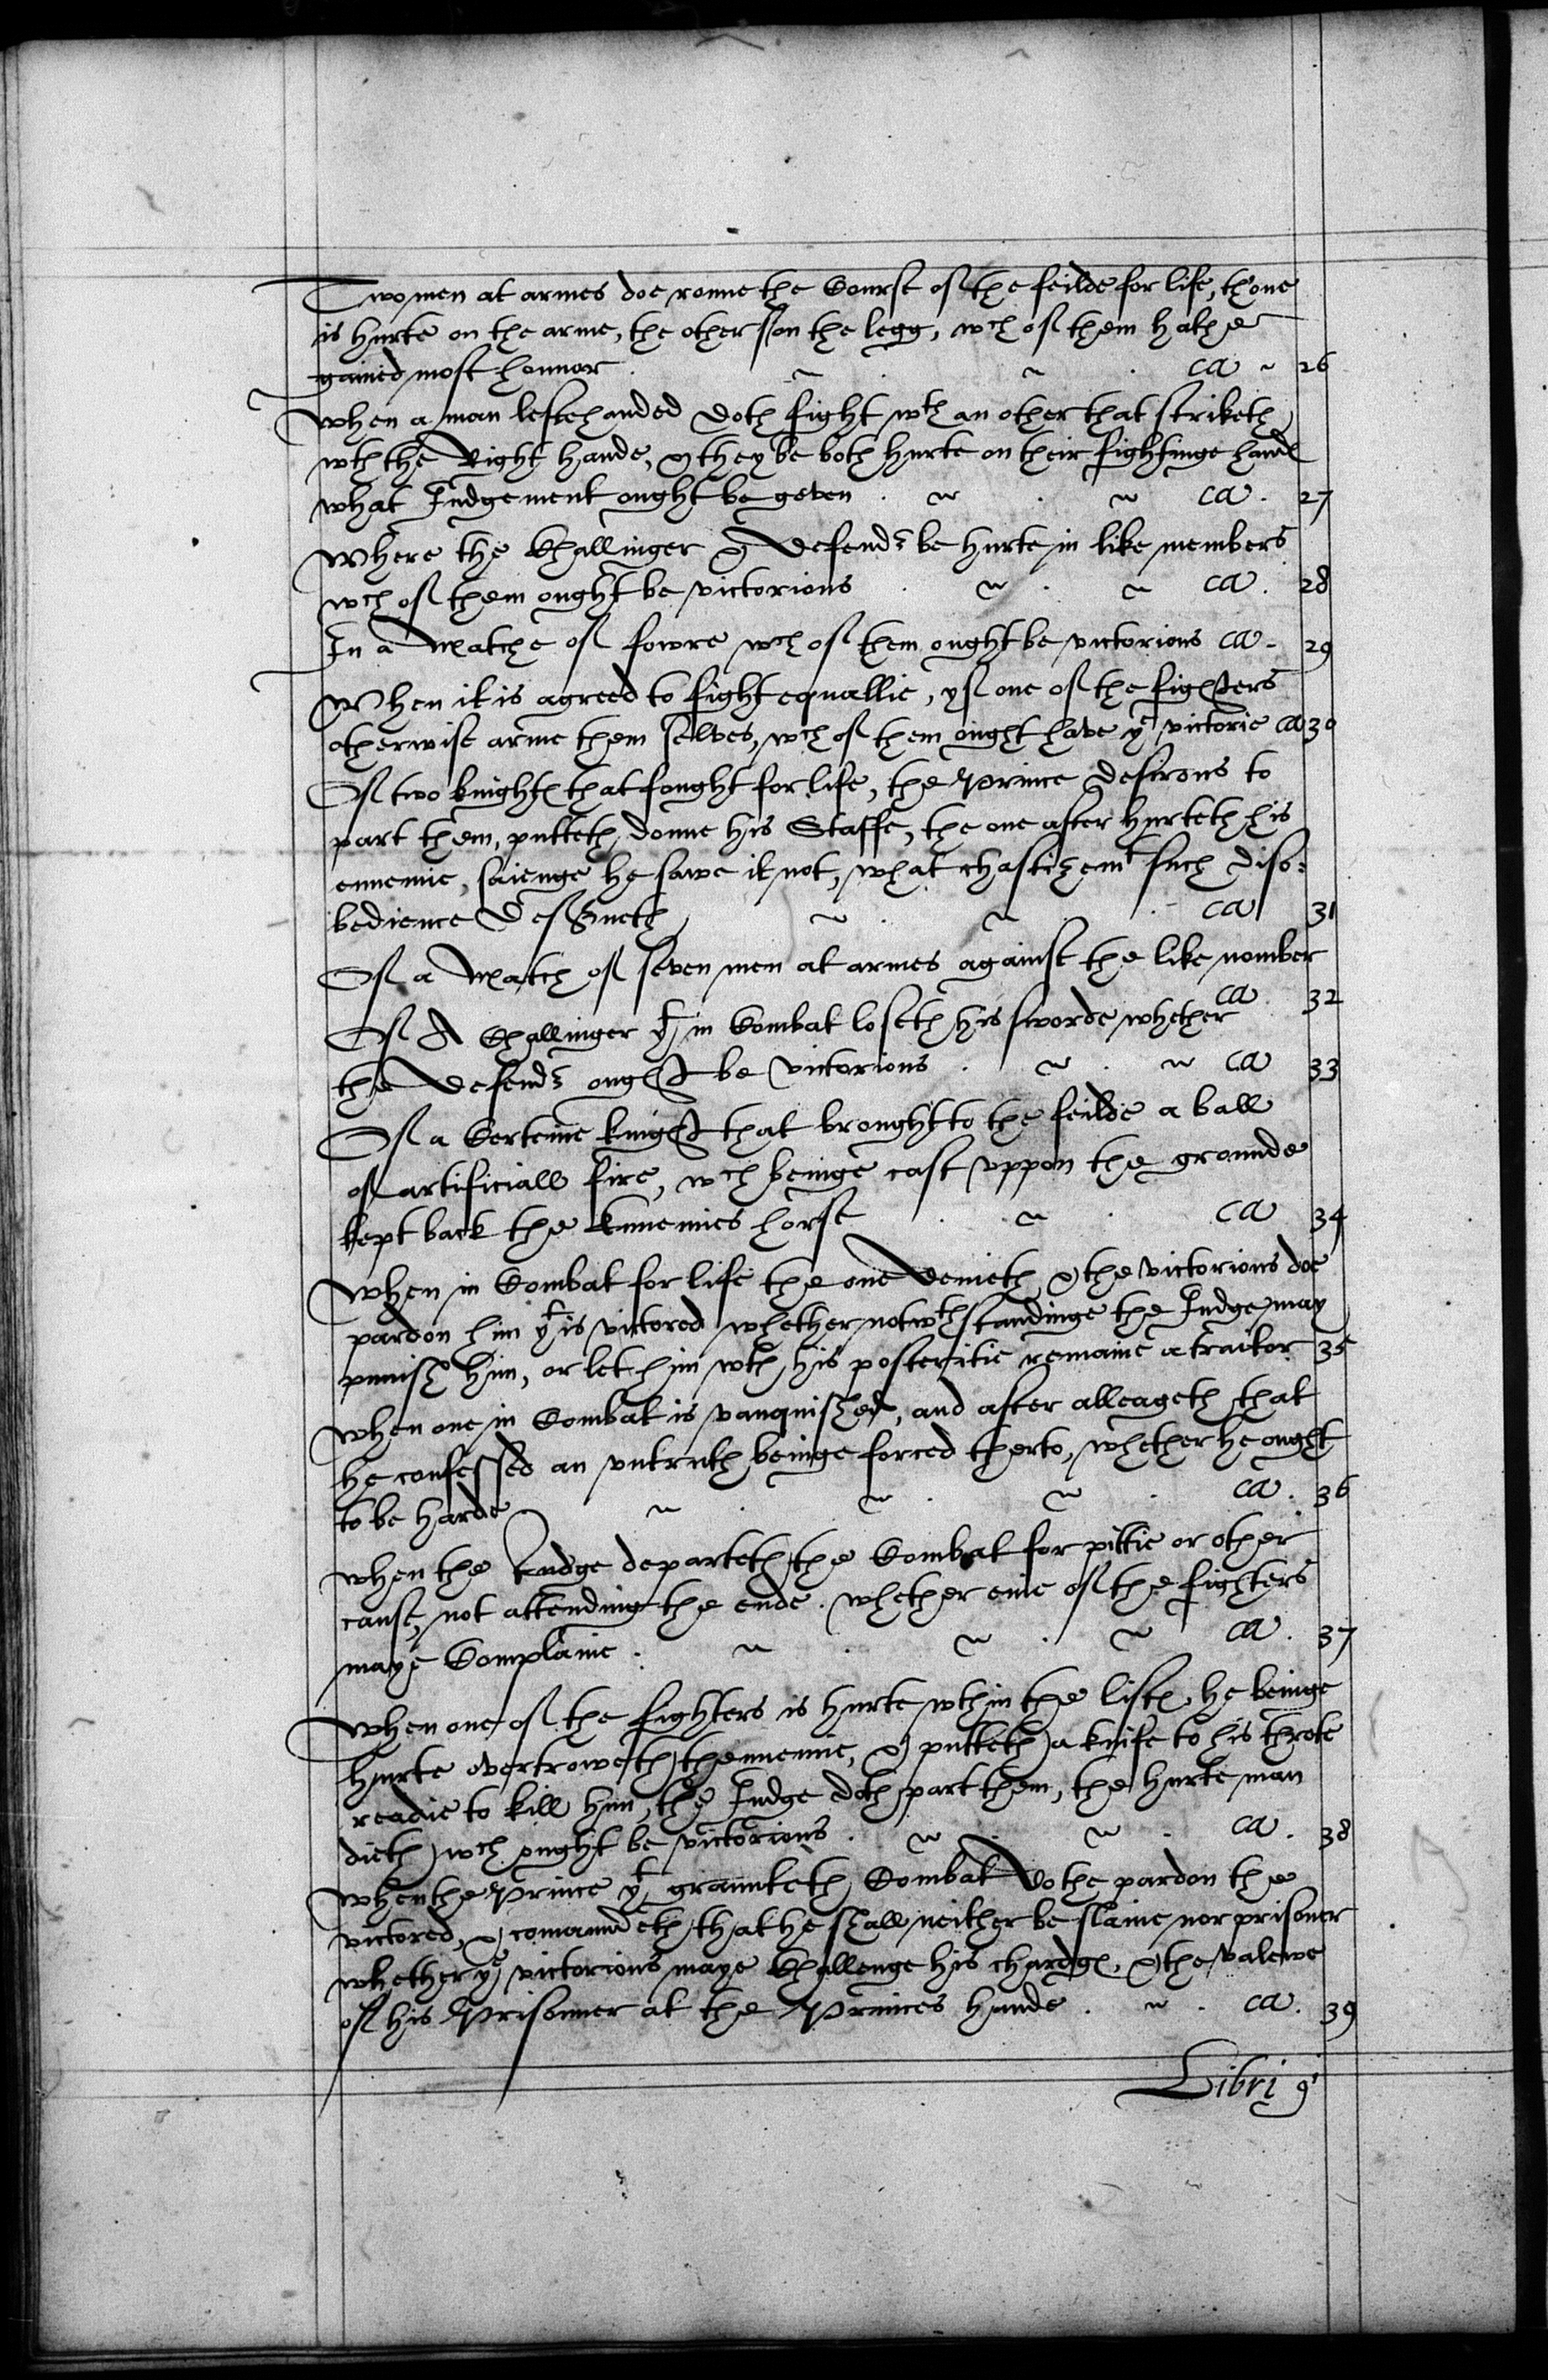 Two men at armes doe ronne the Course of the feilde for life, thone
is hurte on the arme, the other on the legg, wch of them hathe
gained most honnor . ~ . ~ . ca ~ 26
when a man leftehanded doth fight wth an other that striketh
wth the Right hande, & they be both hurte on their fightinge hand
what Judgement ought be geven . ~ . ~ ca . 27
Where the Challinger & Defendt be hurte in like members
wch of them ought be victorious . ~ . ~ ca . 28
In a Matche of fowre wch of them ought be victorious ca . 29
When it is agreed to fight equallie, yf one of the fighters
otherwise arme them selves, wch of them ought have ye victorie ca 30
Of two knights that fought for life, the Prince desirous to
part them, putteth donne his Staffe, the one after hurteth his
ennemie, saienge he sawe it not, what chastizemt such diso:
bedience Deserveth ~ . ~ . ca 31
Of a Match of seven men at armes against the like nomber
ca . 32
Of A Challinger yt in Combat loseth his sworde whether
the Defendt ought be victorious . ~ . ~ ca 33
Of a Certeine knight that brought to the feilde a ball
of artificiall fire, wch beinge cast uppon the grounde
kept back the Ennemies horse . ~ . ca 34
When in Combat for life the one denieth & the victorious doe
pardon him yt is victored whether notwthstandinge the Judge may
punish him, or let him wth his posteritie remaine a traitor 35
When one in Combat is vanquished, and after alleageth that
he confessed an untruth beinge forced therto, whether he ought
to be harde ~ . ~ . ~ . ca . 36
when the Judge departeth the Combat for pittie or other
cause, not attending the ende . whether onie of the fighters
maye Complaine . ~ . ~ . ~ ca . 37
When one of the fighters is hurte wthin the lists, he beinge
hurte overtroweth thennemie, & putteth a knife to his throte
readie to kill him, the Judge doth part them, the hurte man
dieth wch ought be victorious . ~ . ~ . ca . 38
When the Prince yt graunteth Combat Dothe pardon the
victored, & comaundeth that he shall neither be slaine nor prisoner
whether ye victorious maye Challenge his chardges, & the valewe
of his Prisonner at the Princes hande . ~ . ca . 39
Libri 9i